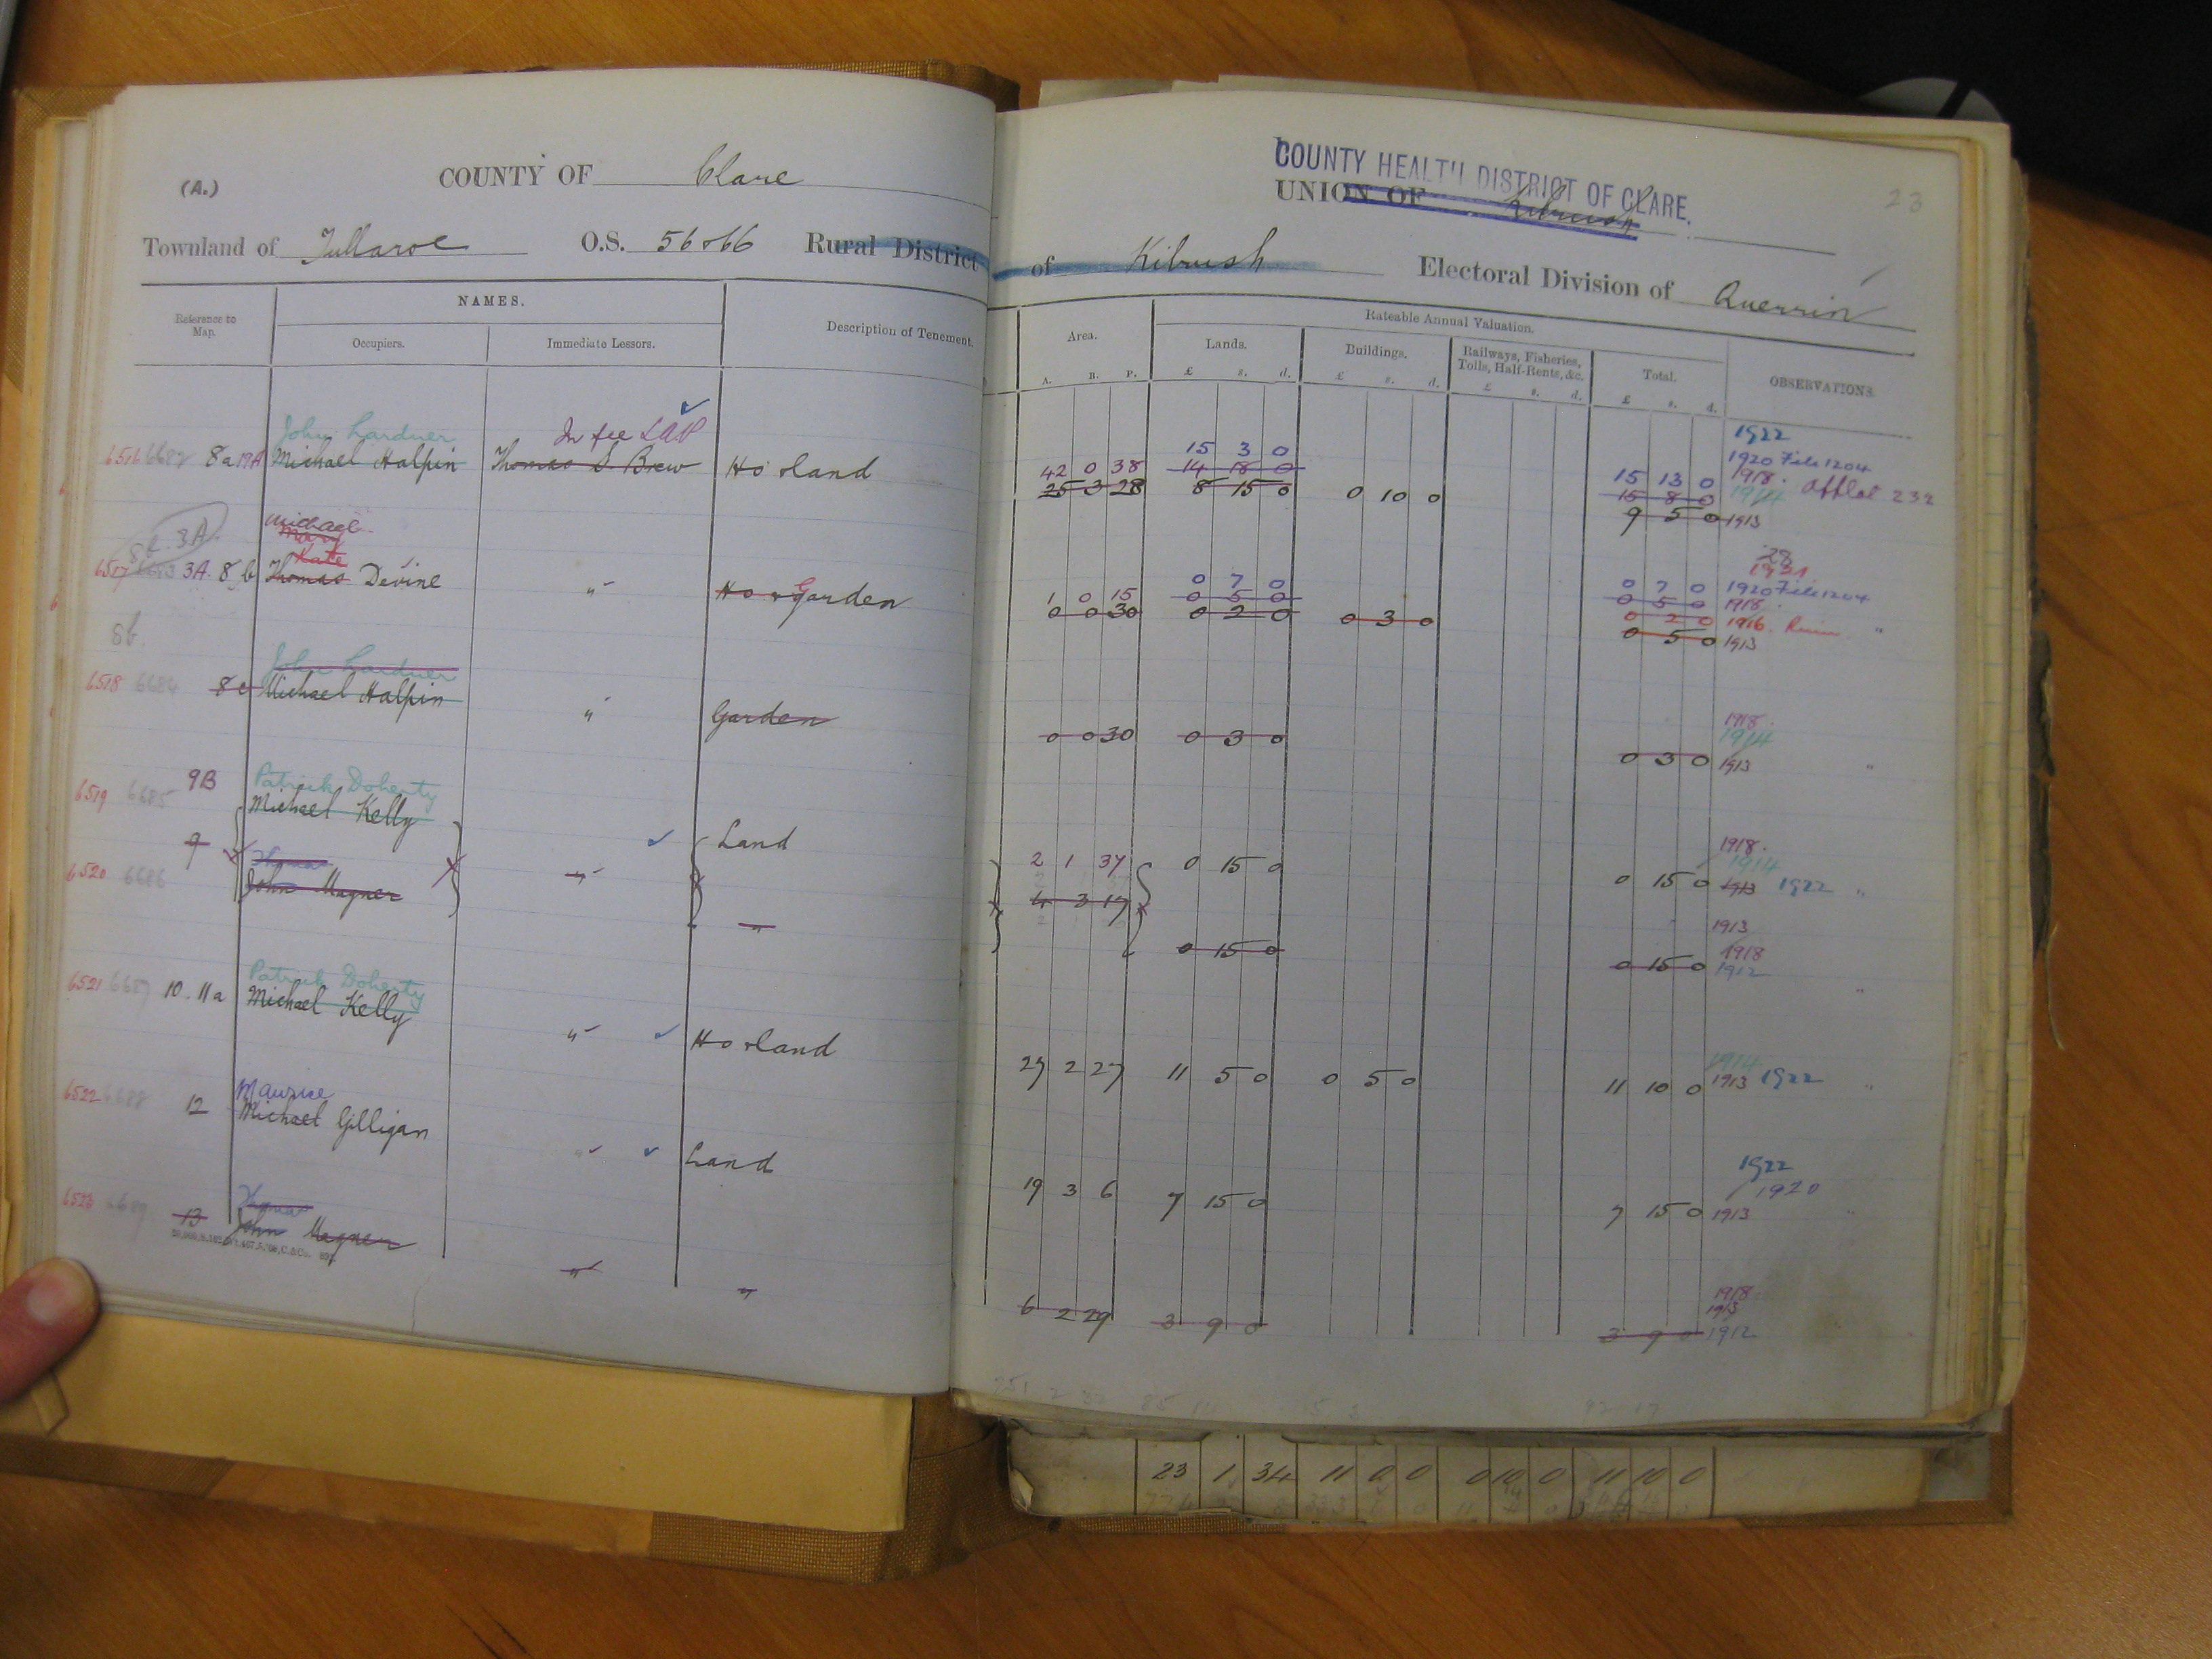 (A.) COUNTY OF Clare
COUNTY HEALTH DISTRICT OF CLARE.
UNION OF Kilrush
23
Townland of Tullaroe O.S. 56 & 66 Rural District of Kilrush Electoral Division of Querrin
Reference to Map. NAMES. Description of Tenement. Area. Rateable Annual Valuation. OBSERVATIONS.
Occupiers. Immediate Lessors. Lands. Buildings. Railways, Fisheries, Tolls, Half-Rents, &c. Total.
A. R. P. £ s. d. £ s. d. £ s. d. £ s. d.
John Lardner In fee LAP 15 3 0 1922
6516 6682 8a 19A Michael Halpin Thomas S. Brew Ho & land 42 0 38 14 18 0 15 13 0 1920 File 1204
25 3 28 8 15 0 0 10 0 15 8 0 1918. 1914 Offlet 232
9 5 0 1913
8c 3A. Michael
Mary
Kate 28
1921
6517 6683 3A. 8 b Thomas Devine " Ho & Garden 1 0 15 0 7 0 0 7 0 1920 File 1204
0 5 0 0 5 0 1918.
0 0 30 0 2 0 0 3 0 0 2 0 1916. Ruin. "
0 5 0 1913
8b.
John Lardner 1918.
6518 6684 8c Michael Halpin " Garden 0 0 30 0 3 0 1914
0 3 0 1913 "
9B Patrick Doherty 1918.
6519 6685 Michael Kelly Land 2 1 37 0 15 0 1914
9 0 15 0 1913 1922 "
Thomas 4 3 17 1913
6520 6686 John Magner " " 0 15 0 1918
0 15 0 1912
Patrick Doherty 1914
6521 6687 10. 11a Michael Kelly " Ho & land 27 2 27 11 5 0 0 5 0 11 10 0 1913 1922 "
Maurice 1922
1920
6522 6688 12 Michael Gilligan " Land 19 3 6 7 15 0 7 15 0 1913
Thomas 1918.
1913
6523 6689 13 John Magner " " 6 2 29 3 9 0 3 9 0 1912
23 1 34 11 0 0 0 10 0 11 10 0